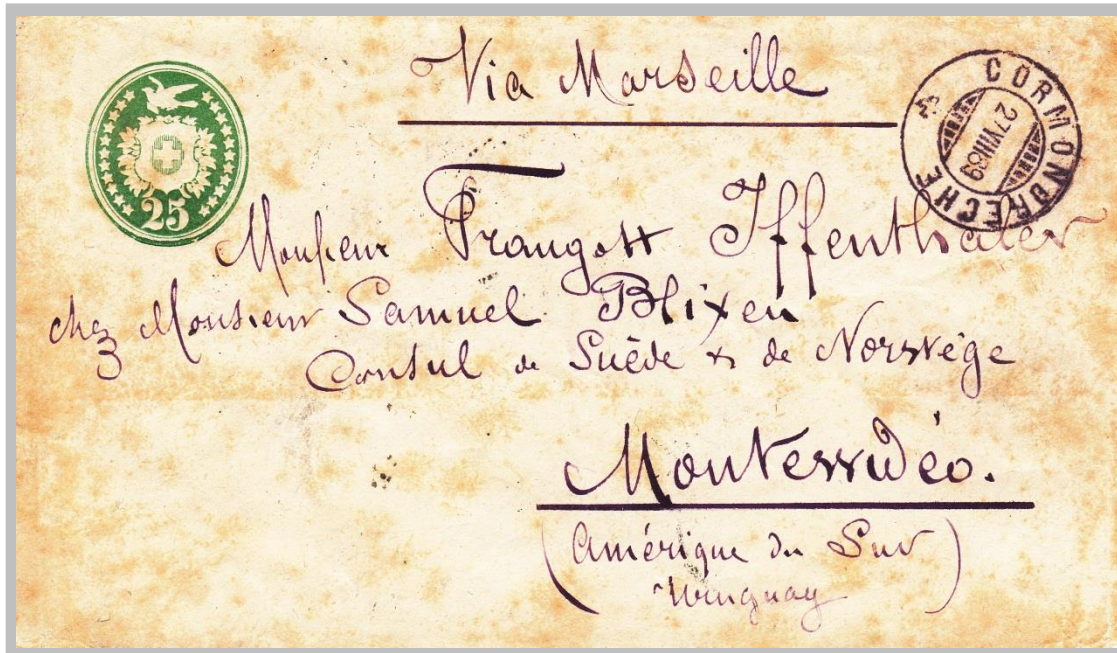 Via Marseille
25
CORMONDRECHE
27 VIII 89
Monsieur Traugott Iffenthaler
chez Monsieur Samuel Blixen
Consul de Suède & de Norvège
Montevidéo.
(Amérique du Sud)
Uruguay